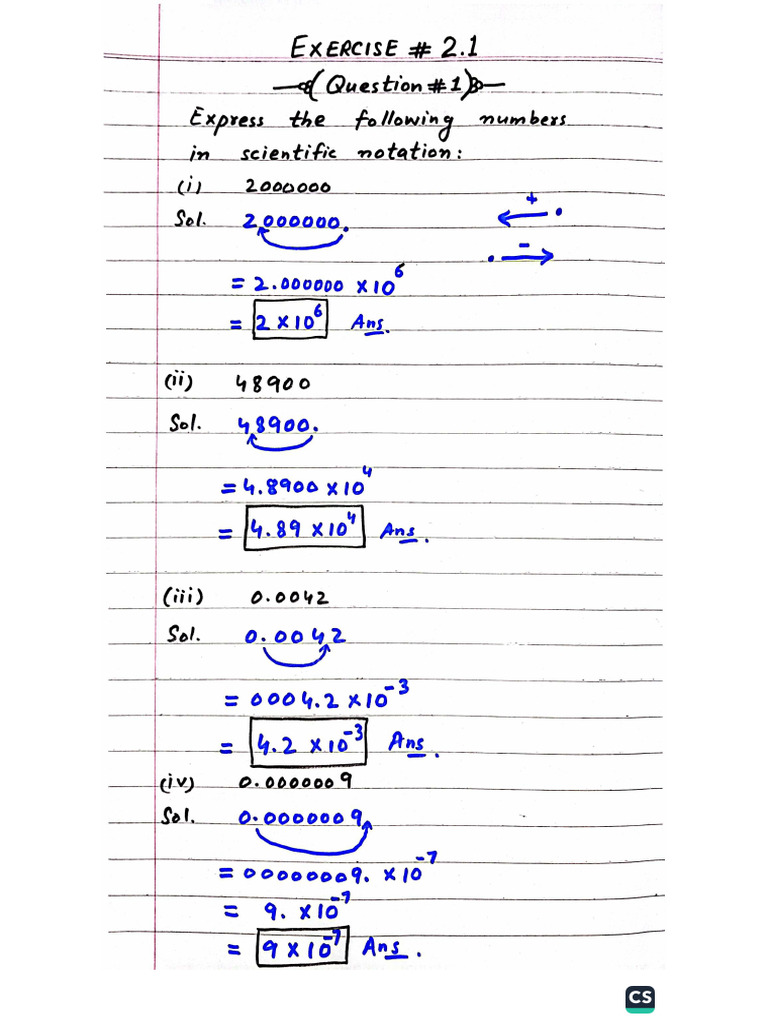 EXERCISE # 2.1
(Question #1)
Express the following numbers
in scientific notation:
(i) 2000000
Sol. 2000000.
+
-
= 2.000000 ×10⁶
= 2 ×10⁶ Ans.
(ii) 48900
Sol. 48900.
= 4.8900 ×10⁴
= 4.89 ×10⁴ Ans.
(iii) 0.0042
Sol. 0.0042
= 0004.2 ×10⁻³
= 4.2 ×10⁻³ Ans.
(iv) 0.0000009
Sol. 0.0000009
= 00000009. ×10⁻⁷
= 9. ×10⁻⁷
= 9 ×10⁻⁷ Ans.
CS